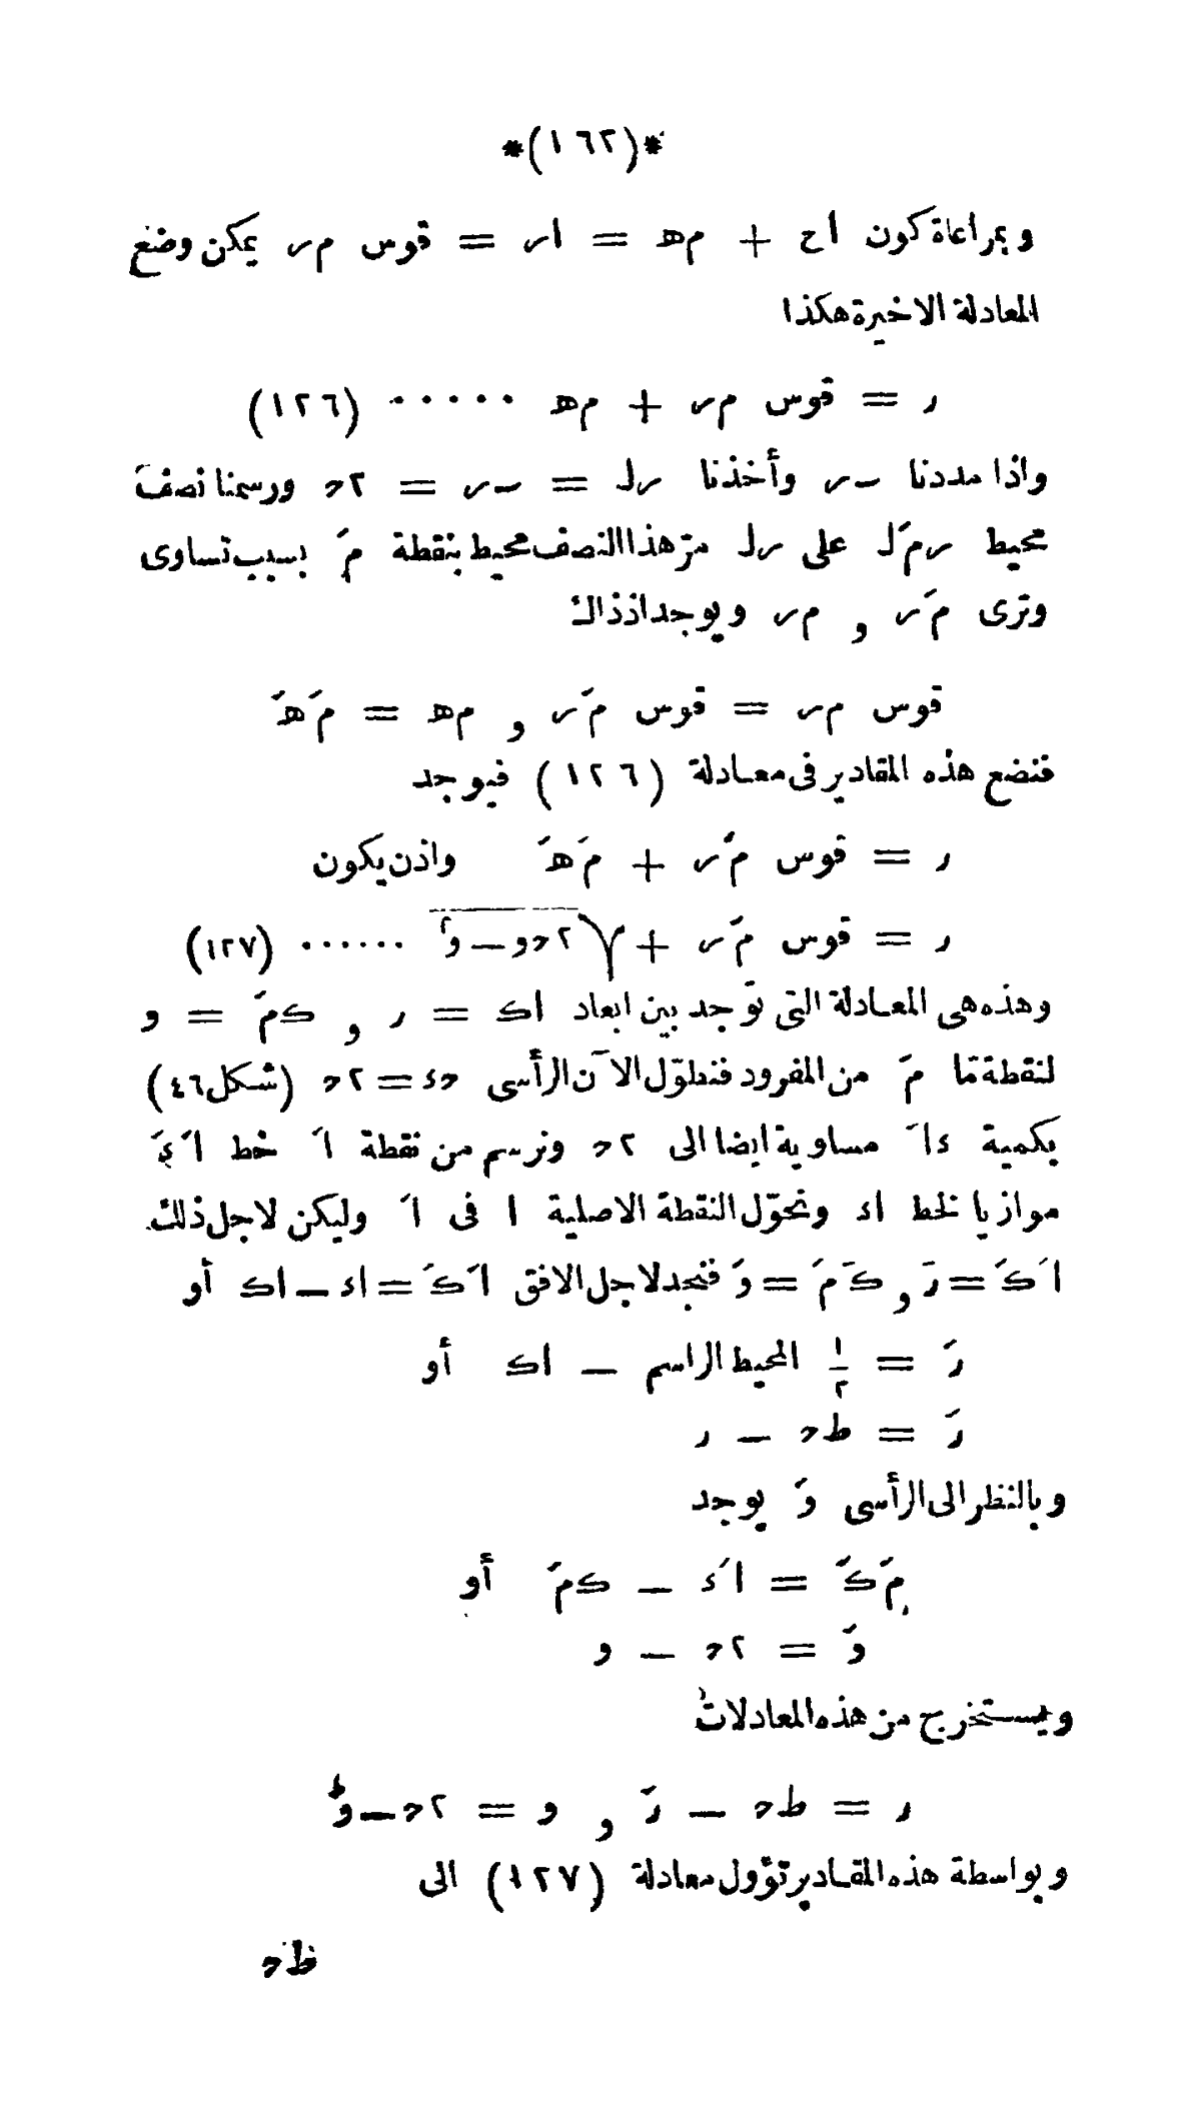 *(١٦٢)*
وبمراعاة كون اح + م‍ه = ار = قوس م‍ر يمكن وضع
المعادلة الاخيرة هكذا
ر = قوس م‍ر + م‍ه ..... (١٢٦)
واذا مددنا ب‍ر وأخذنا رل = ب‍ر = ٢ح ورسمنا نصف
محيط رمَل على رل مرّ هذا النصف محيط بنقطة مَ بسبب تساوى
وترى مَر و م‍ر ويوجد اذ ذاك
قوس م‍ر = قوس مَر و م‍ه = مَهَ
فنضع هذه المقادير فى معادلة (١٢٦) فيوجد
ر = قوس مَر + مَهَ واذن يكون
ر = قوس مَر + √٢حو — و٢ ...... (١٢٧)
وهذه هى المعادلة التى توجد بين ابعاد اك = ر و كمَ = و
لنقطة مّا مَ من المفرود فنطوّل الآن الرأسى حء = ٢ح (شكل ٤٦)
بكمية ءاَ مساوية ايضا الى ٢ح ونرسم من نقطة اَ خط اَءَ
موازيا لخط اء ونحوّل النقطة الاصلية ا فى اَ وليكن لاجل ذلك
اَكَ = رَ و كَمَ = وَ فنجد لاجل الافق اَكَ = اء — اك أو
رَ = ١/٢ المحيط الراسم — اك أو
رَ = طح — ر
وبالنظر الى الرأسى وَ يوجد
مَكَ = اَء — كمَ أو
وَ = ٢ح — و
ويستخرج من هذه المعادلات
ر = طح — رَ و و = ٢ح — وَ
وبواسطة هذه المقادير تؤول معادلة (١٢٧) الى
طح